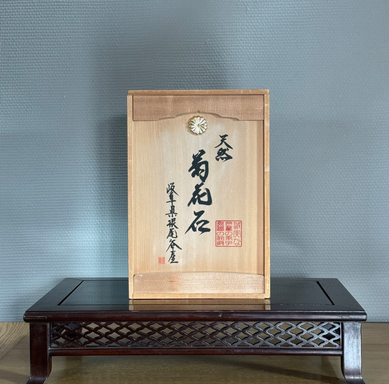 天然
菊花石
岐阜県根尾谷産